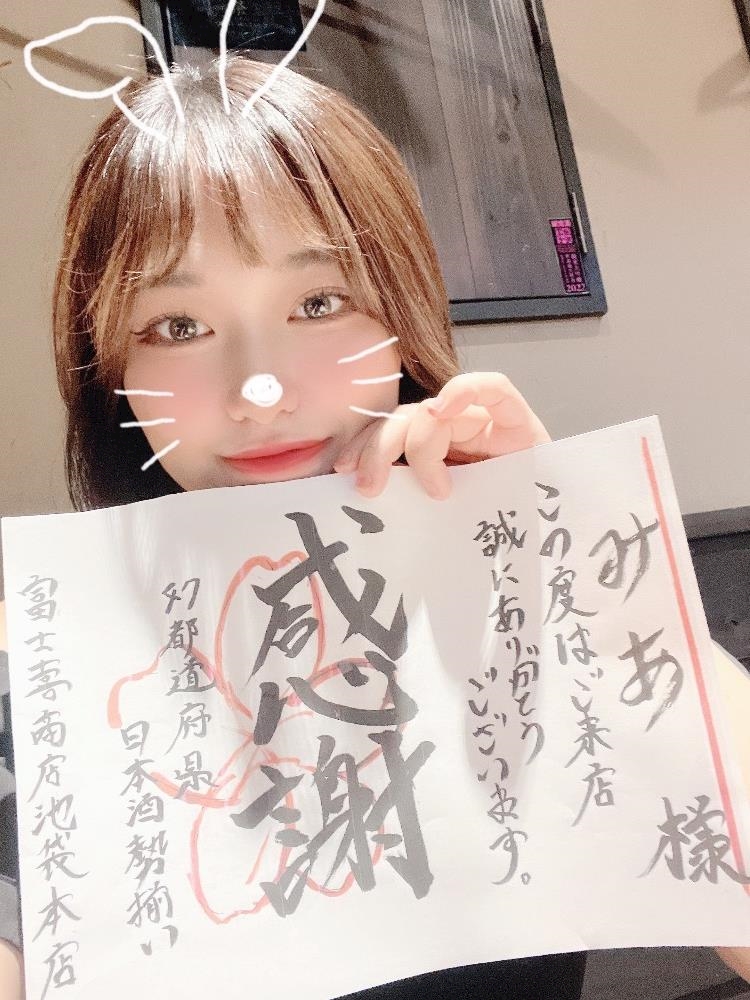 みあ 様
この度はご来店
誠にありがとう
ございます。
感謝
47都道府県
日本酒勢揃い
富士喜商店池袋本店
2022